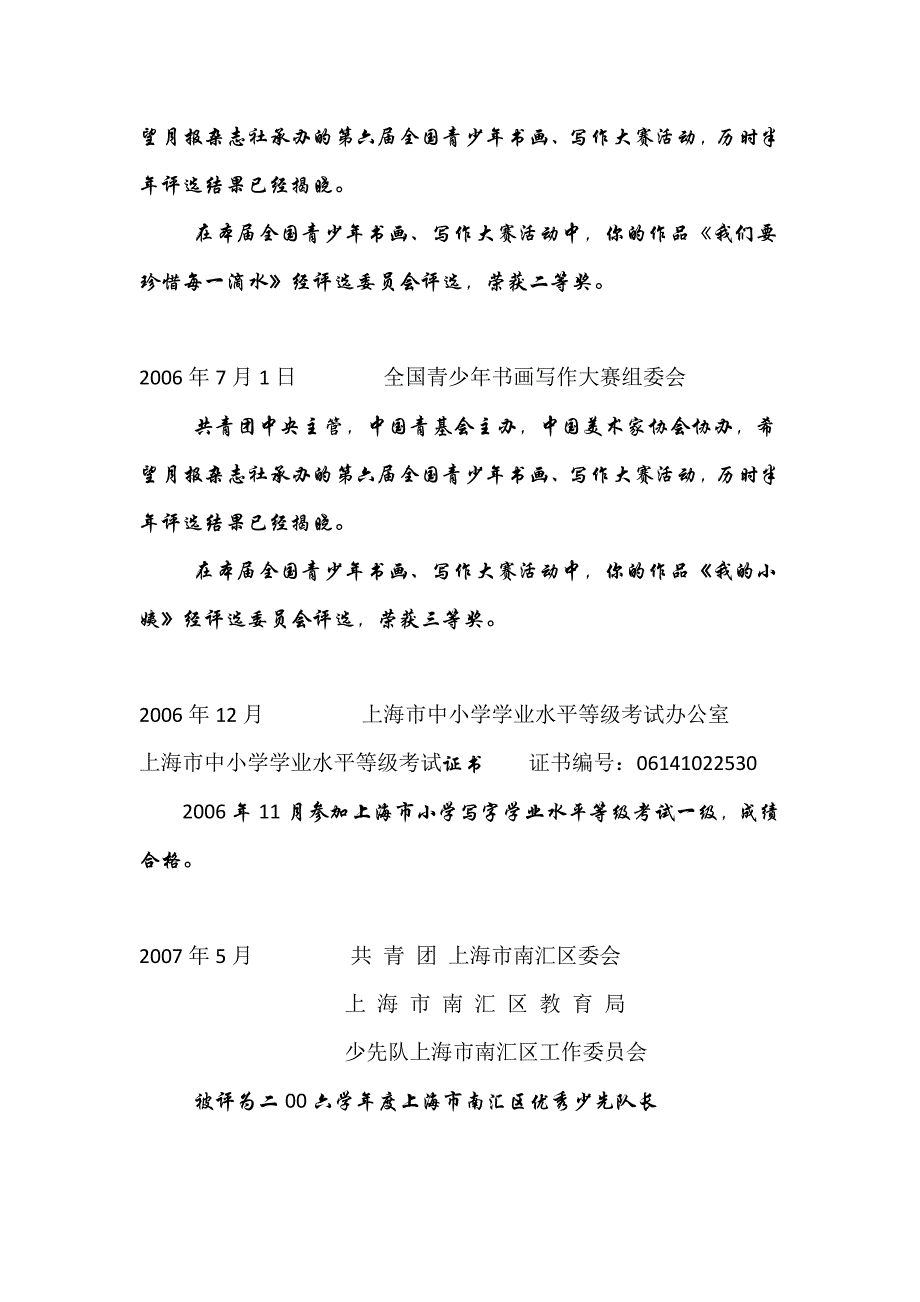 望月报杂志社承办的第六届全国青少年书画、写作大赛活动，历时半
年评选结果已经揭晓。
在本届全国青少年书画、写作大赛活动中，你的作品《我们要
珍惜每一滴水》经评选委员会评选，荣获二等奖。
2006 年 7 月 1 日 全国青少年书画写作大赛组委会
共青团中央主管，中国青基会主办，中国美术家协会协办，希
望月报杂志社承办的第六届全国青少年书画、写作大赛活动，历时半
年评选结果已经揭晓。
在本届全国青少年书画、写作大赛活动中，你的作品《我的小
姨》经评选委员会评选，荣获三等奖。
2006 年 12 月 上海市中小学学业水平等级考试办公室
上海市中小学学业水平等级考试证书 证书编号：06141022530
2006 年 11 月参加上海市小学写字学业水平等级考试一级，成绩
合格。
2007 年 5 月 共 青 团 上海市南汇区委会
上 海 市 南 汇 区 教 育 局
少先队上海市南汇区工作委员会
被评为二 00 六学年度上海市南汇区优秀少先队长